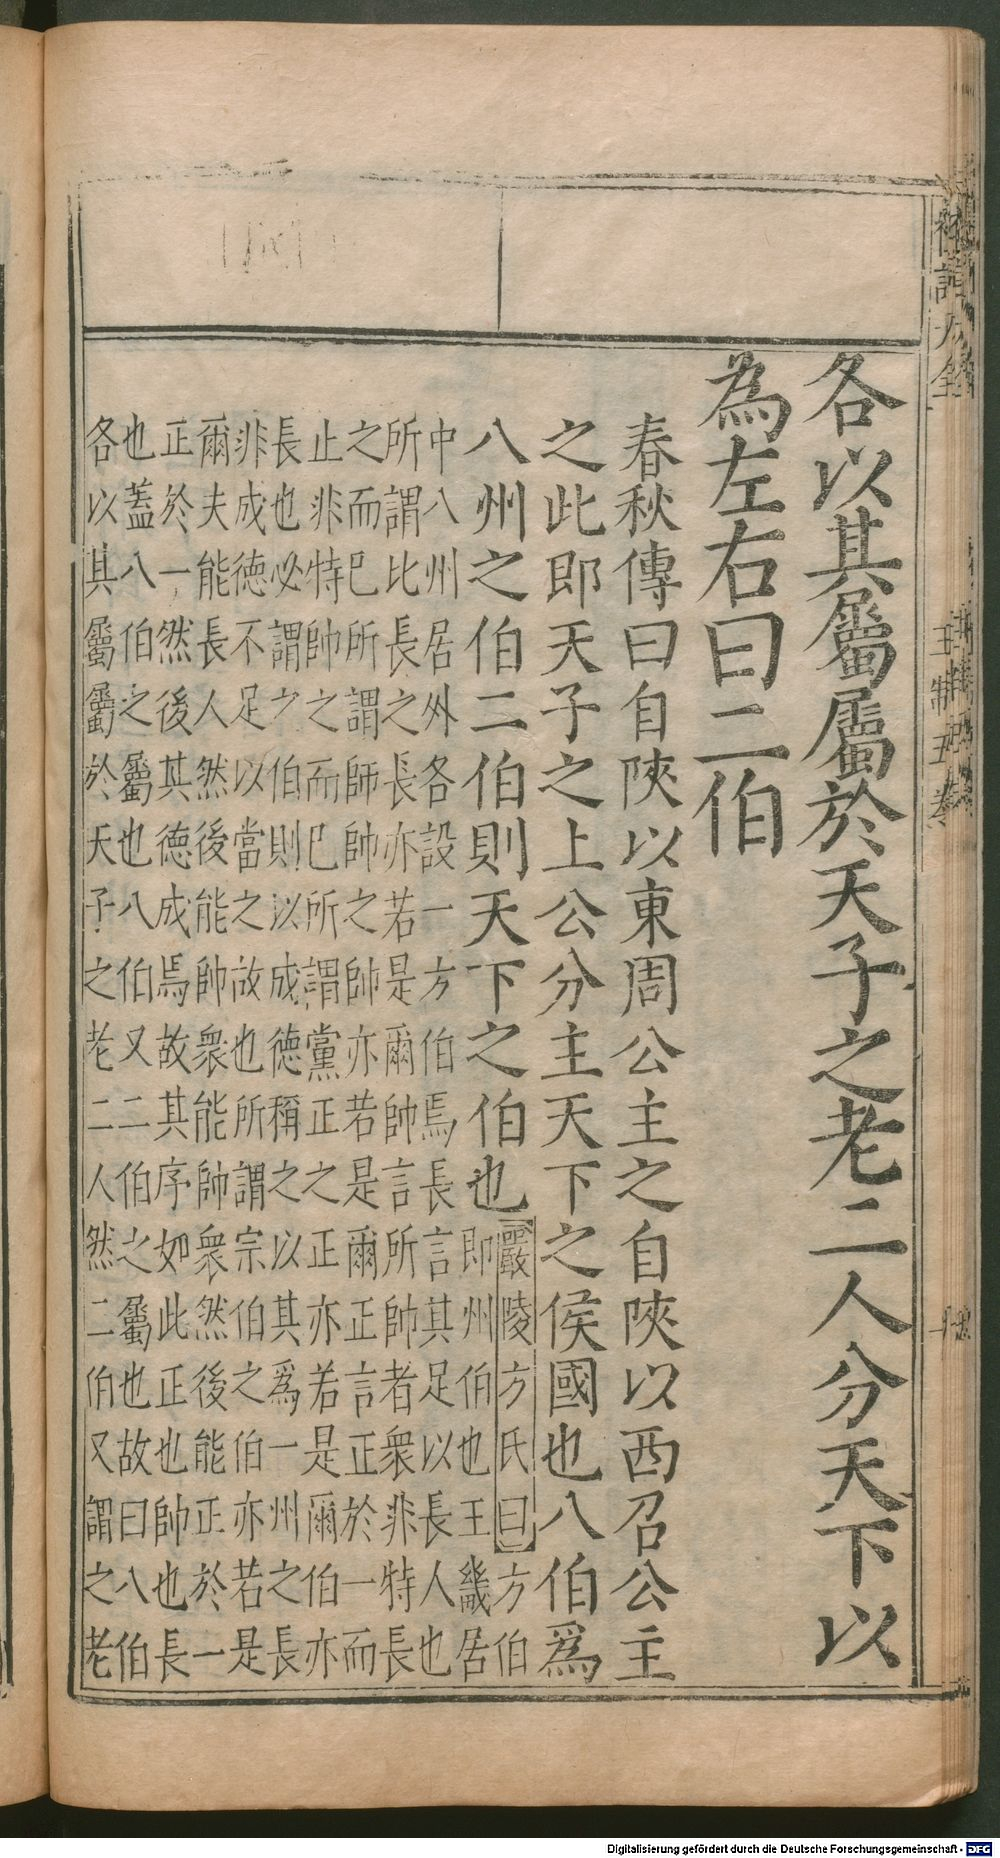 各以其屬屬於天子之老二人分天下以
為左右曰二伯
春秋傳曰自陝以東周公主之自陝以西召公主
之此即天子之上公分主天下之侯國也八伯爲
八州之伯二伯則天下之伯也
嚴陵方氏曰方伯
即州伯也王畿居
中八州居外各設一方伯焉長言其足以長人也
所謂比長之長亦若是爾帥言所帥者衆非特長
之而巳所謂師帥之帥亦若是爾正言正於一而
止非特帥之而巳所謂黨正之正亦若是爾伯亦
長也必謂之伯則以成德稱之以其爲一州之長
非成德不足以當之故也所謂宗伯之伯亦若是
爾夫能長人然後能帥衆能帥衆然後能正於一
正於一然後其德成焉故其序如此正也帥也長
也蓋八伯之屬也八伯又二伯之屬也故曰八伯
各以其屬屬於天子之老二人然二伯又謂之老
Digitalisierung gefördert durch die Deutsche Forschungsgemeinschaft - DFG